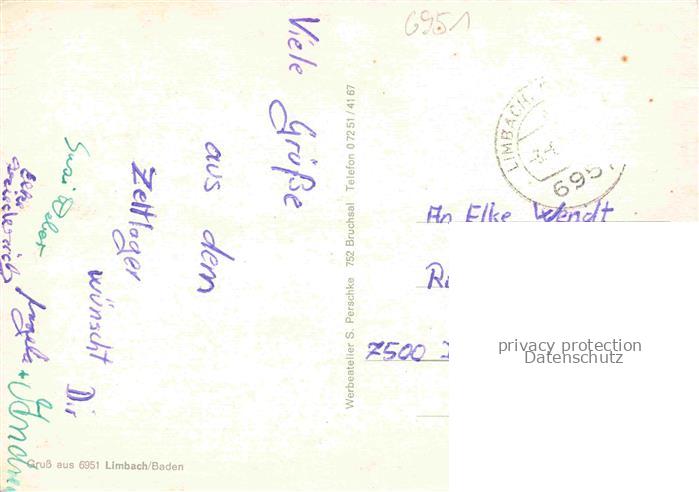 6951
Viele Grüße
aus dem
Zeltlager
wünscht Dir
Angela +
Werbeatelier S. Perschke 752 Bruchsal Telefon 0 72 51 / 41 67
LIMBACH
695
An Elke Wendt
7500
privacy protection
Datenschutz
Gruß aus 6951 Limbach/Baden